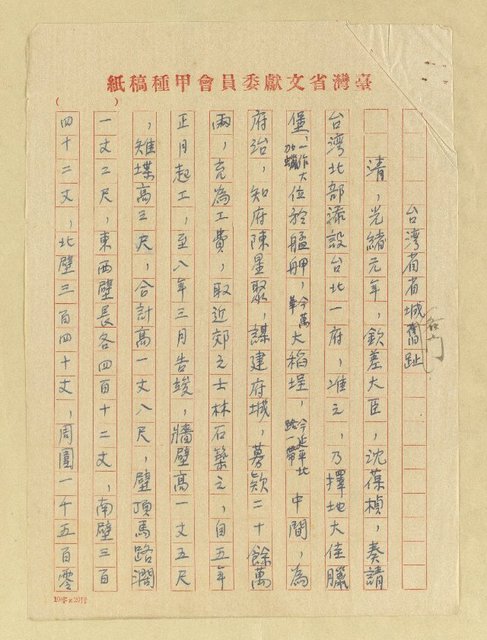 臺灣省文獻委員會甲種稿紙
台湾省省城舊趾
清，光緒元年，欽差大臣，沈葆楨，奏請
台湾北部添設台北一府，准之，乃擇地大佳臘
堡，一作大加蚋位於艋舺，今萬華大稻埕，今延平北路一帶中間，為
府治，知府陳星聚，謀建府城，募款二十餘萬
兩，充為工費，取近郊之士林石築之，自五年
正月起工，至八年三月告竣，牆壁高一丈五尺
，雉堞高三尺，合計高一丈八尺，壁頂馬路濶
一丈二尺，東西壁長各四百十二丈，南壁三百
四十二丈，北壁三百四十丈，周圍一千五百零